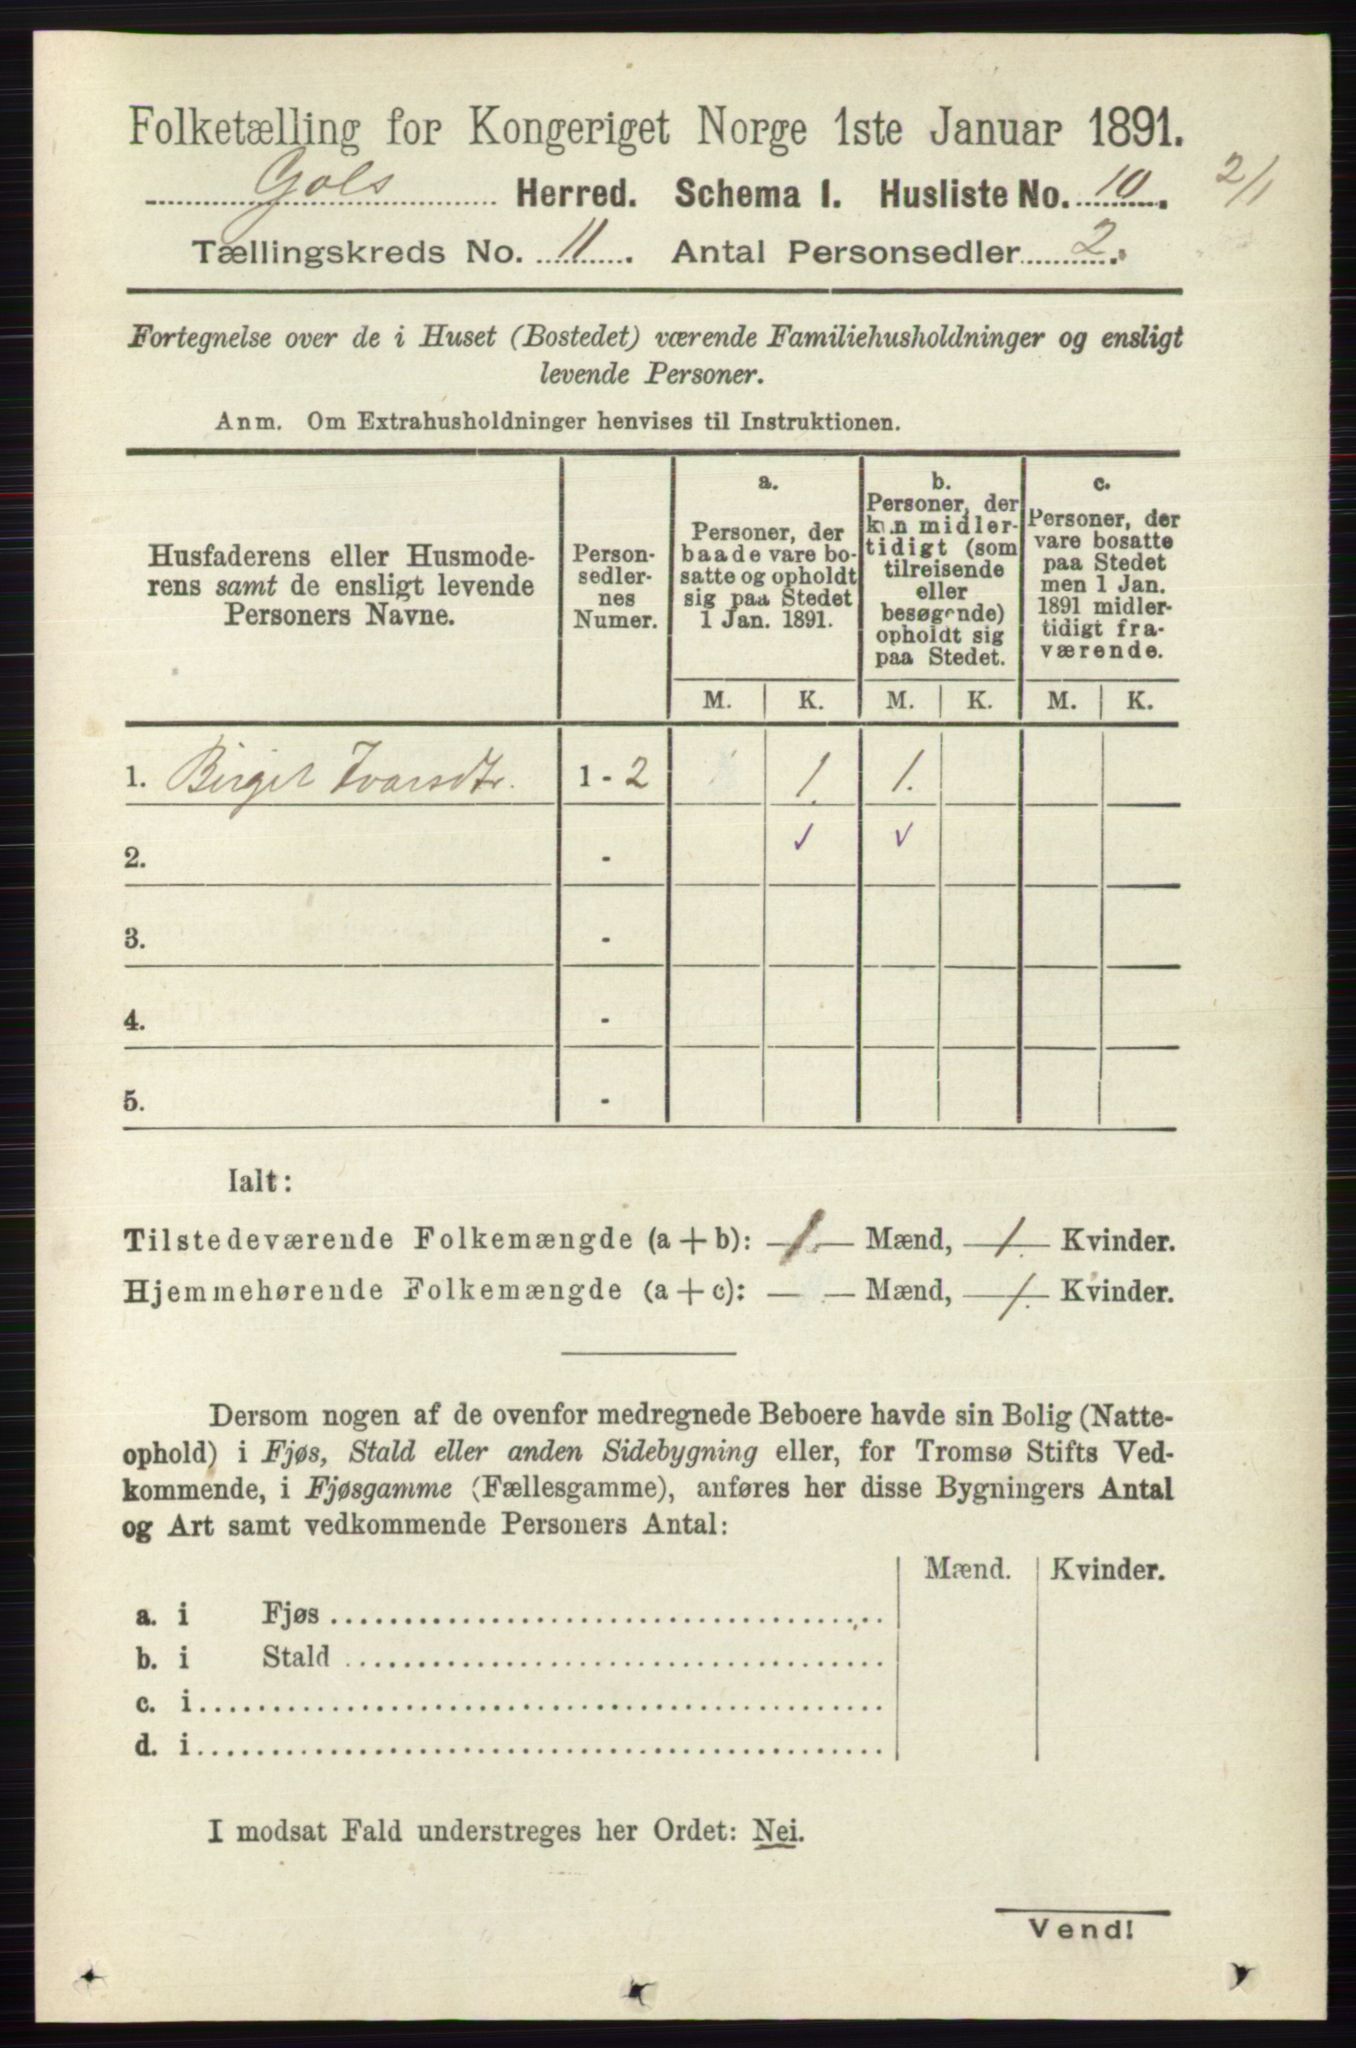 Folketælling for Kongeriget Norge 1ste Januar 1891.
Gols Herred. Schema I. Husliste No. 10. 2/1
Tællingskreds No. 11. Antal Personsedler 2.
Fortegnelse over de i Huset (Bostedet) værende Familiehusholdninger og ensligt
levende Personer.
Anm. Om Extrahusholdninger henvises til Instruktionen.
Husfaderens eller Husmode-
rens samt de ensligt levende
Personers Navne.
Person-
sedler-
nes
Numer.
a.
Personer, der
baade vare bo-
satte og opholdt
sig paa Stedet
1 Jan. 1891.
b.
Personer, der
kun midler-
tidigt (som
tilreisende
eller
besøgende)
opholdt sig
paa Stedet.
c.
Personer, der
vare bosatte
paa Stedet
men 1 Jan.
1891 midler-
tidigt fra-
værende.
M. K. M. K. M. K.
1. Birgit Ivarsdtr. 1 - 2 1. 1.
2. - ✓ ✓
3. -
4. -
5. -
Ialt:
Tilstedeværende Folkemængde (a + b): — 1. — Mænd, — 1. — Kvinder.
Hjemmehørende Folkemængde (a + c): — — Mænd, — 1. — Kvinder.
Dersom nogen af de ovenfor medregnede Beboere havde sin Bolig (Natte-
ophold) i Fjøs, Stald eller anden Sidebygning eller, for Tromsø Stifts Ved-
kommende, i Fjøsgamme (Fællesgamme), anføres her disse Bygningers Antal
og Art samt vedkommende Personers Antal:
Mænd. Kvinder.
a. i Fjøs
b. i Stald
c. i
d. i
I modsat Fald understreges her Ordet: Nei.
Vend!